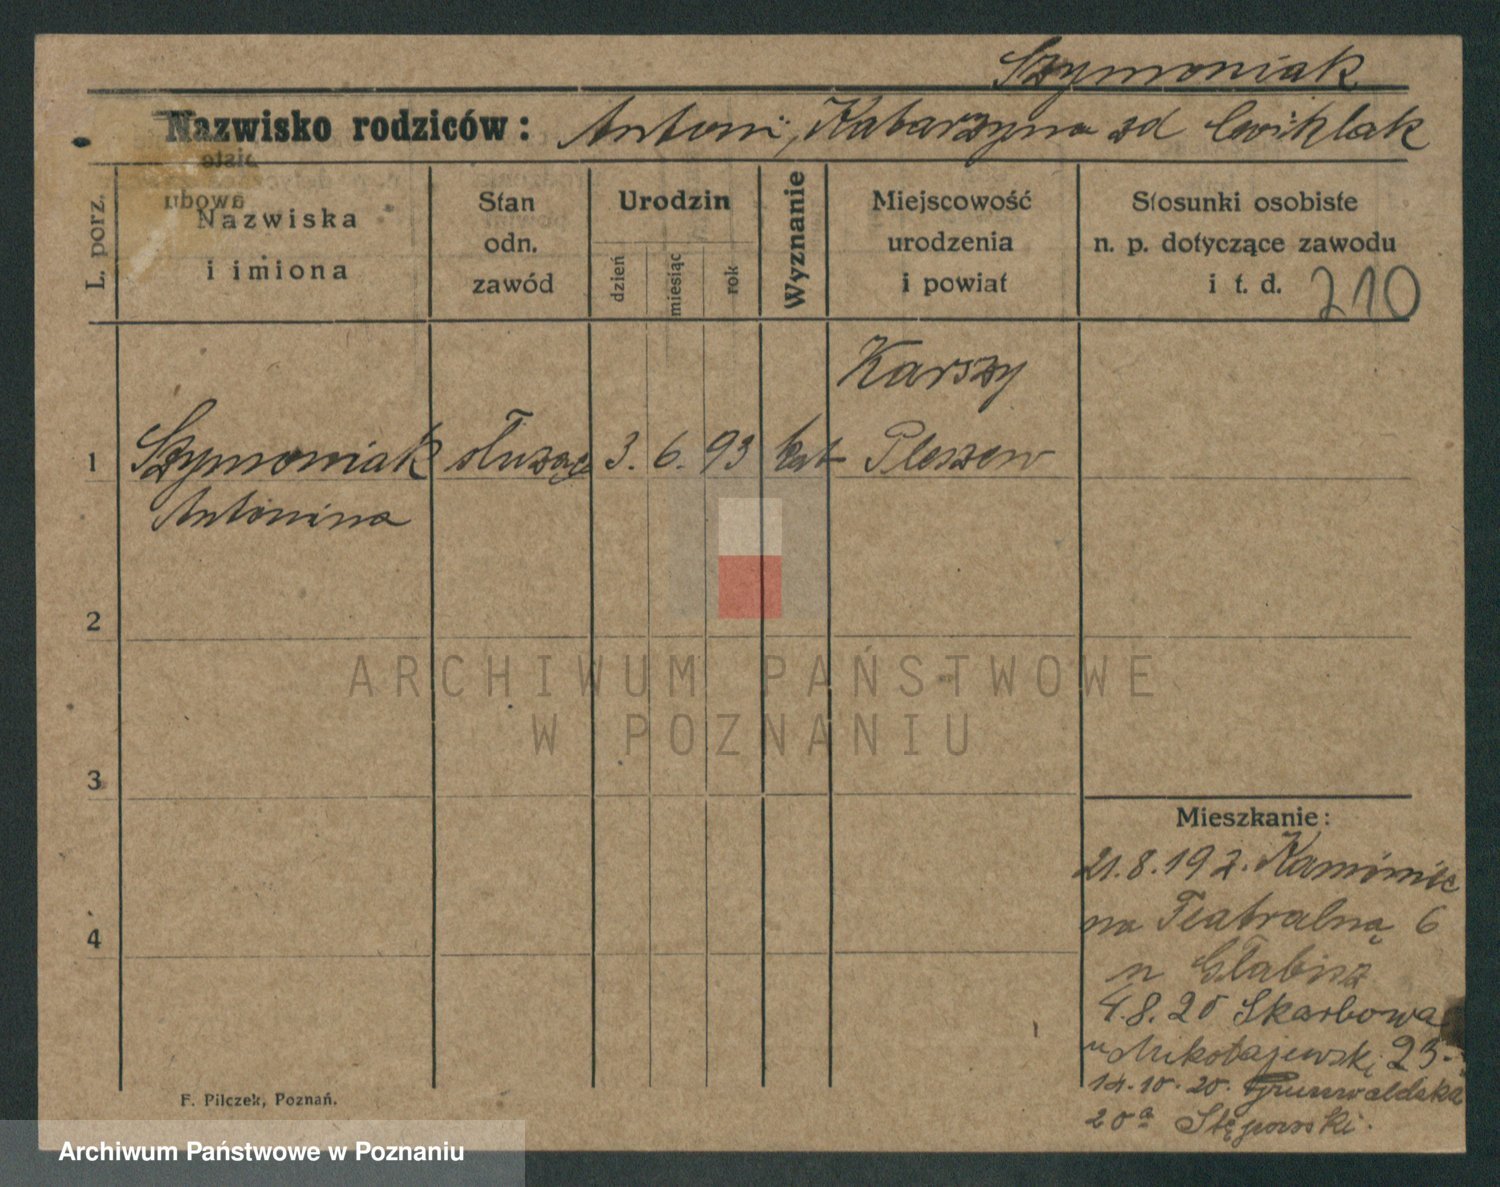 Szymoniak
Nazwisko rodziców: Antoni, Katarzyna zd Cwiklak
L. porz.
Nazwiska
i imiona
Stan
odn.
zawód
Urodzin
dzień
miesiąc
rok
Wyznanie
Miejscowość
urodzenia
i powiat
Stosunki osobiste
n. p. dotyczące zawodu
i t. d. 210
Karszy
1 Szymoniak służąca 3. 6. 93 kat Pleszew
Antonina
2
3
4
Mieszkanie:
21.8.192. Kamimie
na Teatralną 6
n Głabisz
4.8.20 Skarbowa
n Mikołajewski 23-
14.10.20. Grunwaldska
20a Stępowski.
F. Pilczek, Poznań.
ARCHIWUM PAŃSTWOWE
W POZNANIU
Archiwum Państwowe w Poznaniu